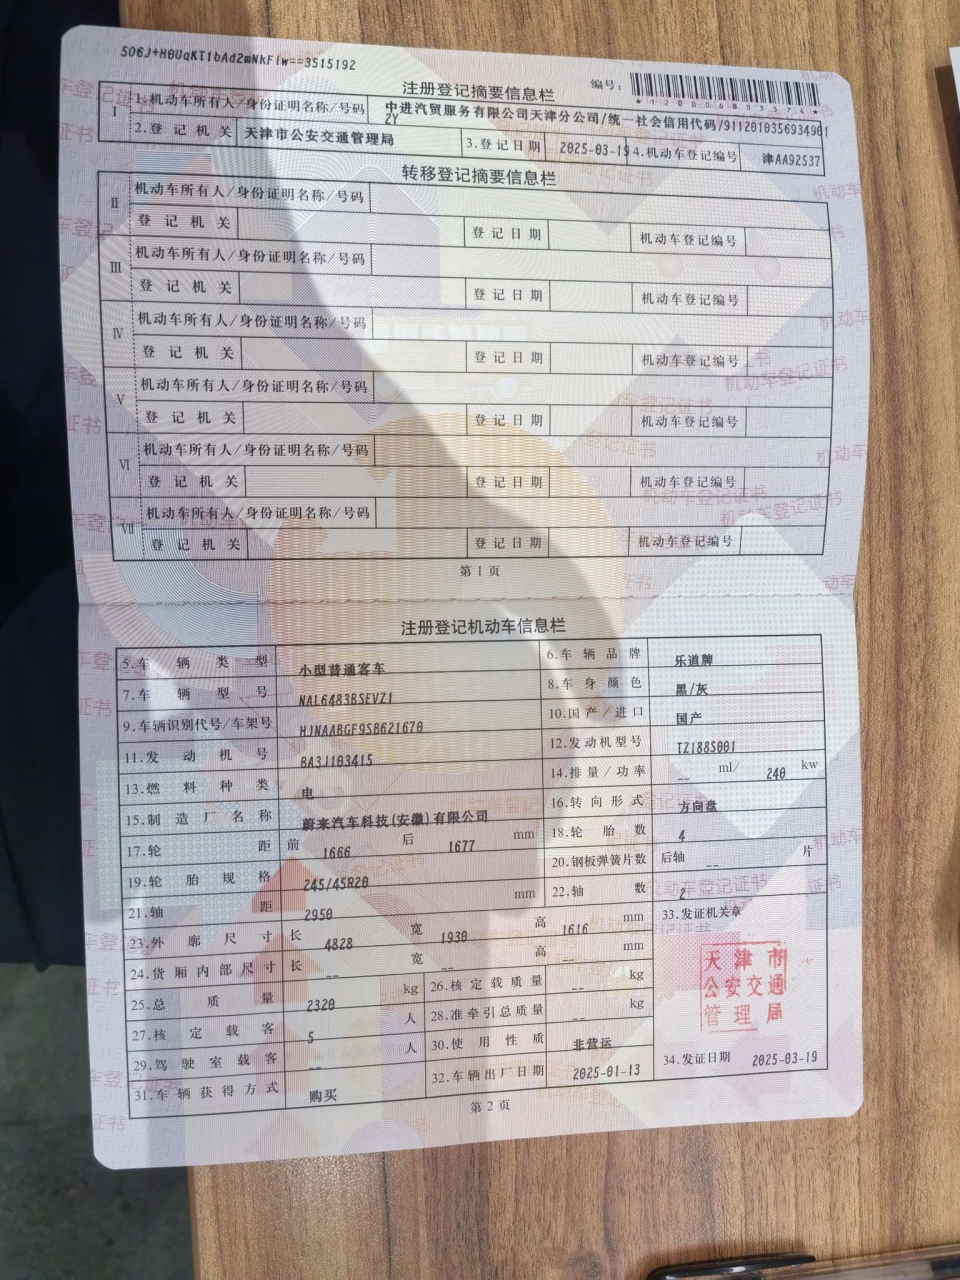 506J+H0UqKT1bAd2mNkFiw==3515192
编号:
*120006805374*
注册登记摘要信息栏
I 1.机动车所有人/身份证明名称/号码 中进汽贸服务有限公司天津分公司/统一社会信用代码/9112010356934901
2Y
2.登记机关 天津市公安交通管理局 3.登记日期 2025-03-19 4.机动车登记编号 津AA92537
转移登记摘要信息栏
II 机动车所有人/身份证明名称/号码
登记机关 登记日期 机动车登记编号
III 机动车所有人/身份证明名称/号码
登记机关 登记日期 机动车登记编号
IV 机动车所有人/身份证明名称/号码
登记机关 登记日期 机动车登记编号
V 机动车所有人/身份证明名称/号码
登记机关 登记日期 机动车登记编号
VI 机动车所有人/身份证明名称/号码
登记机关 登记日期 机动车登记编号
VII 机动车所有人/身份证明名称/号码
登记机关 登记日期 机动车登记编号
第1页
注册登记机动车信息栏
5.车辆类型 小型普通客车 6.车辆品牌 乐道牌
7.车辆型号 NAL6483BSEVZ1 8.车身颜色 黑/灰
9.车辆识别代号/车架号 HJNAABGF9SB621670 10.国产/进口 国产
11.发动机号 BA3J103415 12.发动机型号 TZ188S001
13.燃料种类 电 14.排量/功率 -- ml/ 240 kw
15.制造厂名称 蔚来汽车科技(安徽)有限公司 16.转向形式 方向盘
17.轮距 前 1666 后 1677 mm 18.轮胎数 4
19.轮胎规格 245/45R20 20.钢板弹簧片数 后轴 -- 片
21.轴距 2950 mm 22.轴数 2
23.外廓尺寸 长 4828 宽 1930 高 1616 mm 33.发证机关章
24.货厢内部尺寸 长 -- 宽 -- 高 -- mm
天津市
公安交通
管理局
25.总质量 2320 kg 26.核定载质量 -- kg
27.核定载客 5 人 28.准牵引总质量 -- kg
29.驾驶室载客 -- 人 30.使用性质 非营运
31.车辆获得方式 购买 32.车辆出厂日期 2025-01-13 34.发证日期 2025-03-19
第2页